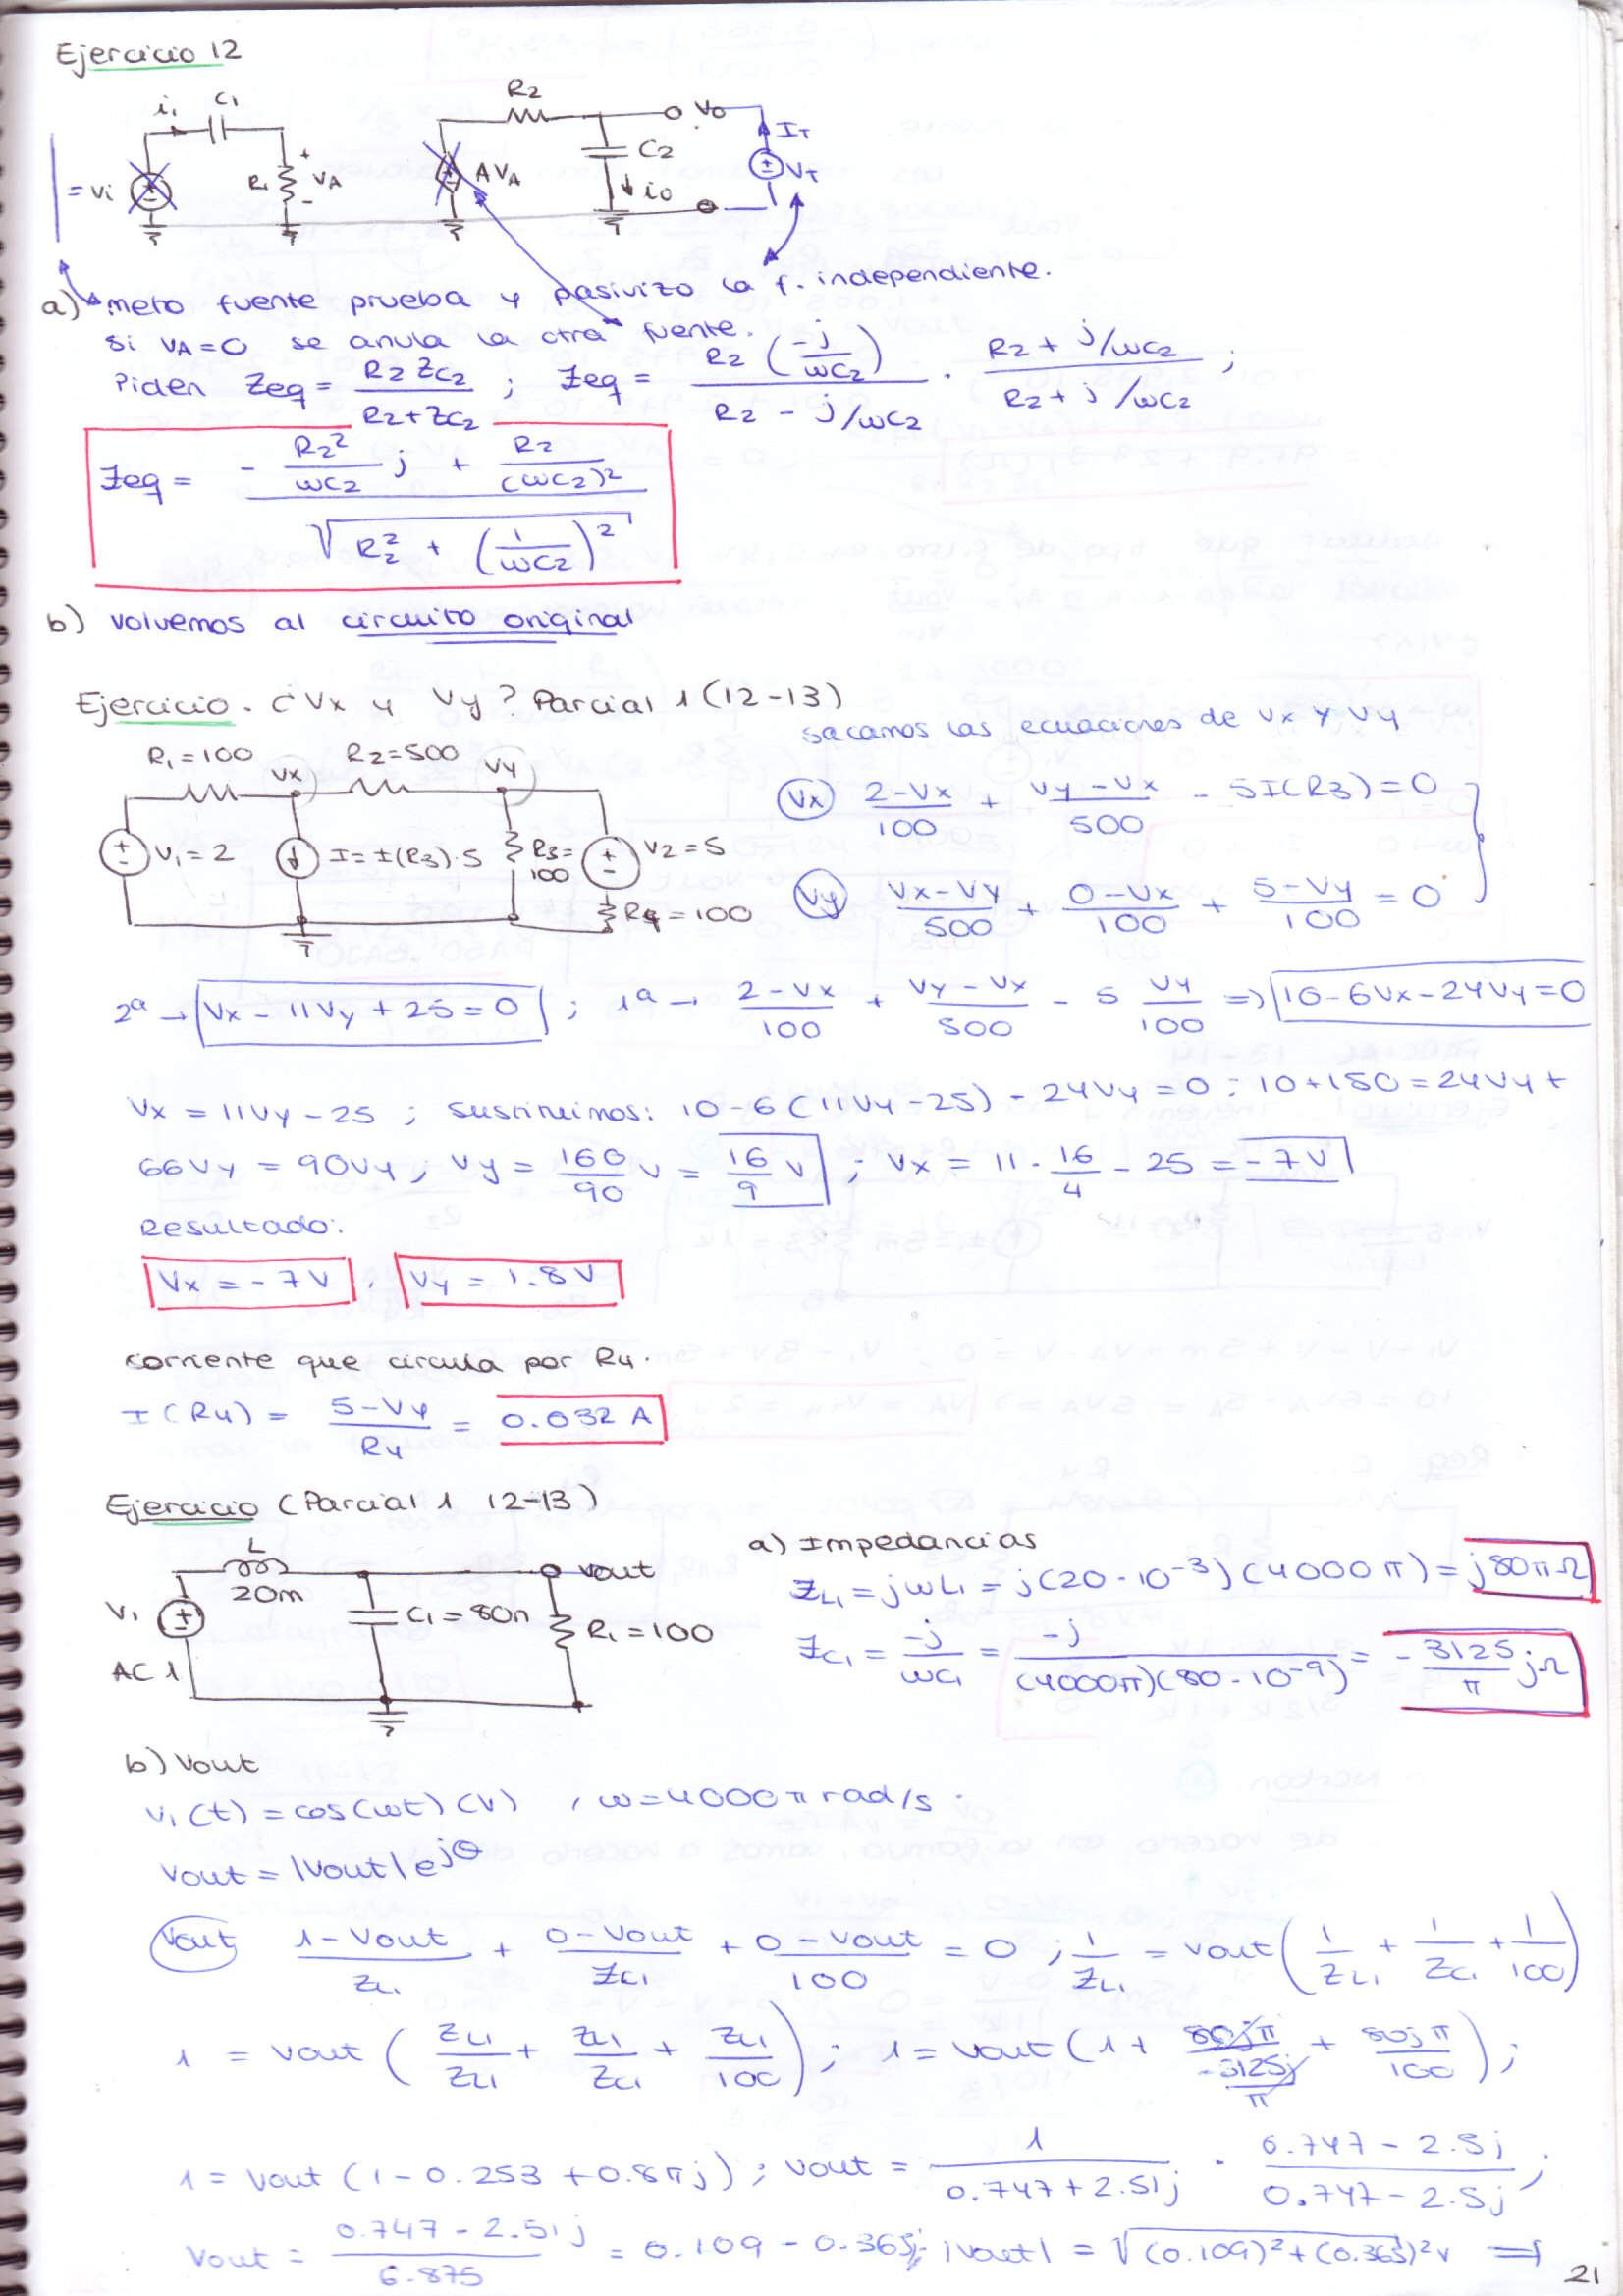 Ejercicio 12
i₁ C₁ R₂ Vo I_T
= Vi R₁ + V_A - A V_A C2 io V_T
a) meto fuente prueba y pasivizo la f. independiente.
Si V_A = 0 se anula la otra fuente.
Piden Zeq = R2 Zc2 / R2 + Zc2 ; Zeq = R2 (-j/ωc2) / R2 - j/ωc2 · R2 + j/ωc2 / R2 + j/ωc2 ;
Zeq = - R2²/ωc2 j + R2/(ωc2)² / √R2² + (1/ωc2)²
b) volvemos al circuito original
Ejercicio. ¿Vx y Vy? Parcial 1 (12-13)
sacamos las ecuaciones de Vx y Vy
R₁ = 100 Vx R₂=500 Vy
V₁ = 2 I = I(R3)·5 R3= 100 V2 = 5
R4 = 100
Vx 2-Vx/100 + Vy-Vx/500 - 5I(R3) = 0
Vy Vx-Vy/500 + 0-Vx/100 + 5-Vy/100 = 0
2ª → Vx - 11Vy + 25 = 0 ; 1ª → 2-Vx/100 + Vy-Vx/500 - 5 Vy/100 => 10-6Vx-24Vy=0
Vx = 11Vy - 25 ; sustituimos: 10-6(11Vy-25) - 24Vy = 0 ; 10+150 = 24Vy +
66Vy = 90Vy ; Vy = 160/90 V = 16/9 V ; Vx = 11 · 16/4 - 25 = -7V
Resultado:
Vx = -7V , Vy = 1.8V
corriente que circula por R4.
I(R4) = 5-Vy/R4 = 0.032 A
Ejercicio (Parcial 1 12-13)
L 20m Vout
V₁ AC 1 C₁ = 80n R₁ = 100
a) Impedancias
ZL₁ = jωL₁ = j(20·10⁻³)(4000π) = j80πΩ
Zc₁ = -j/ωc₁ = -j/(4000π)(80·10⁻⁹) = - 3125/π jΩ
b) Vout
V₁(t) = cos(ωt)(V) , ω=4000π rad/s.
Vout = |Vout| e^jθ
Vout 1-Vout/ZL₁ + 0-Vout/Zc₁ + 0-Vout/100 = 0 ; 1/ZL₁ = Vout(1/ZL₁ + 1/Zc₁ + 1/100)
1 = Vout (ZL1/ZL1 + ZL1/Zc1 + ZL1/100) ; 1 = Vout (1 + 80jπ/-3125j/π + 80jπ/100) ;
1 = Vout (1-0.253 + 0.8πj) ; Vout = 1/0.747+2.51j · 0.747-2.5j/0.747-2.5j ;
Vout = 0.747-2.51j/6.875 = 0.109 - 0.365j; |Vout| = √(0.109)²+(0.365)² V =>
21